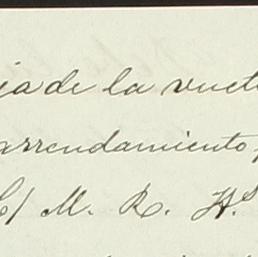 ia de la vuelt
arrendamiento
C/ M. R. Hs